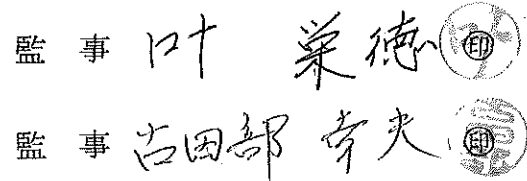 監事 叶 栄徳 ㊞
監事 古田部 幸夫 ㊞